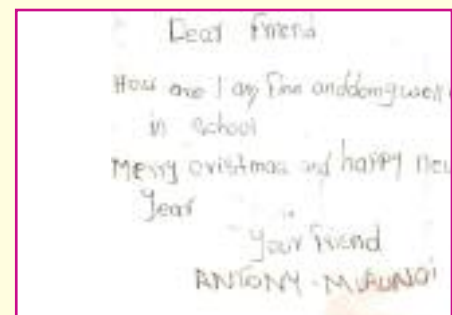 Dear Friend
How are I am fine and doing well
in school
Merry cristmas and happy new
Year
your friend
ANTONY